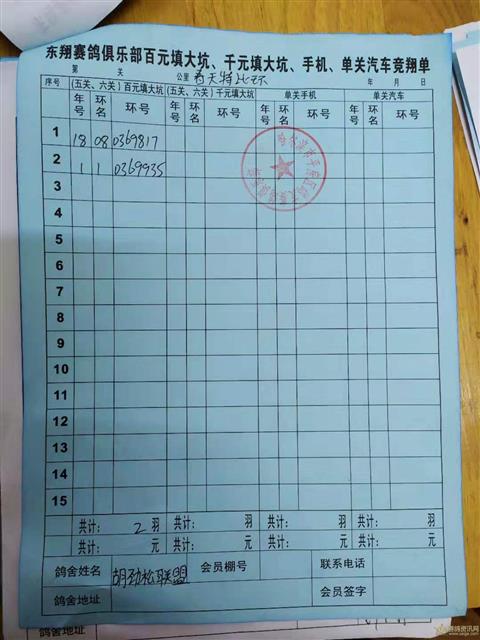 东翔赛鸽俱乐部百元填大坑、千元填大坑、手机、单关汽车竞翔单
第 关 公里 年 月 日
序号 (五关、六关)百元填大坑 (五关、六关)千元填大坑 单关手机 单关汽车
年号 环名 环号 年号 环名 环号 年号 环名 环号 年号 环名 环号
1 18 08 0369817
2 1 1 0369935
3
4
5
6
7
8
9
10
11
12
13
14
15
共计: 2 羽 共计: 羽 共计: 羽 共计: 羽
共计: 元 共计: 元 共计: 元 共计: 元
鸽舍姓名 胡劲松联盟 会员棚号 联系电话
鸽舍地址 会员签字
鸽舍地址